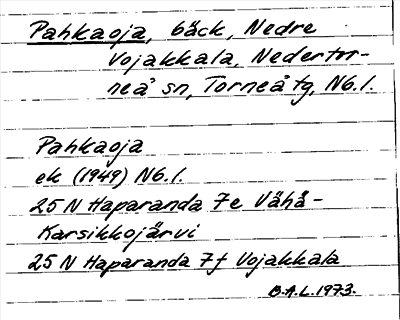 Pahkaoja, bäck, Nedre
Vojakkala, Nedertor-
neå sn, Torneå tg, Nb.l.
Pahkaoja
ek (1949) Nb.l.
25 N Haparanda 7e Vähä-
Karsikkojärvi
25 N Haparanda 7f Vojakkala
B.A.L. 1973.